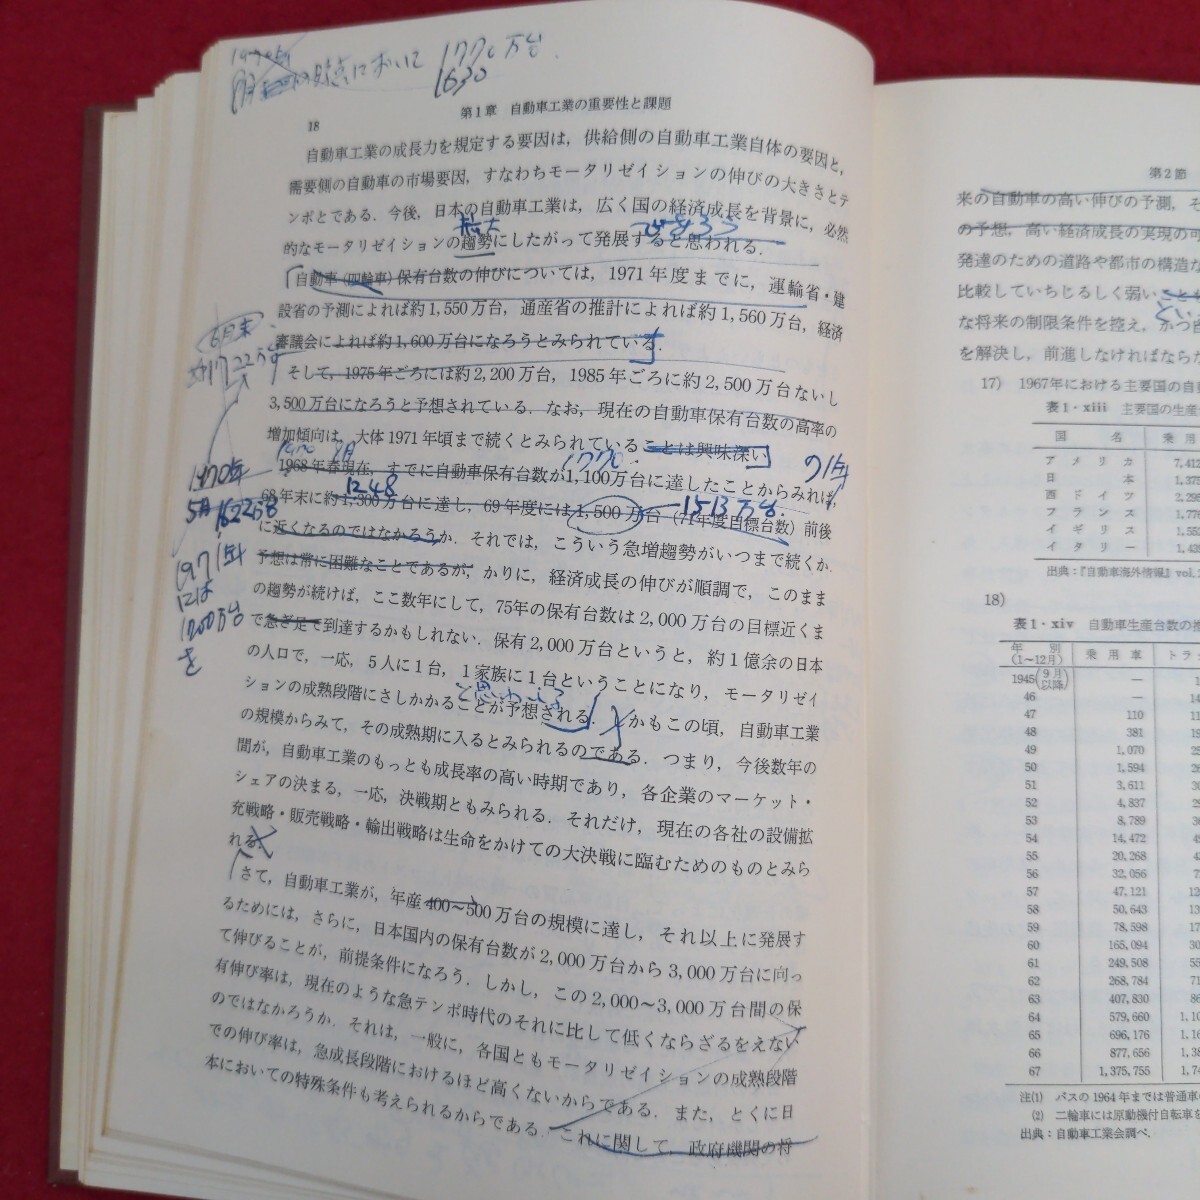 1770万台
1630
18
第1章 自動車工業の重要性と課題
自動車工業の成長力を規定する要因は，供給側の自動車工業自体の要因と，
需要側の自動車の市場要因，すなわちモータリゼイションの伸びの大きさとテ
ンポとである．今後，日本の自動車工業は，広く国の経済成長を背景に，必然
的なモータリゼイションの趨勢にしたがって発展すると思われる．
自動車（四輪車）保有台数の伸びについては，1971年度までに，運輸省・建
設省の予測によれば約1,550万台，通産省の推計によれば約1,560万台，経済
審議会によれば約1,600万台になろうとみられている．
そして，1975年ごろには約2,200万台，1985年ごろに約2,500万台ないし
3,500万台になろうと予想されている．なお，現在の自動車保有台数の高率の
増加傾向は，大体1971年頃まで続くとみられていることは興味深い
1770
の1年
1968年春現在，すでに自動車保有台数が1,100万台に達したことからみれば，
1248
1513万台
68年末に約1,300万台に達し，69年度には1,500万台（71年度目標台数）前後
に近くなるのではなかろうか．それでは，こういう急増趨勢がいつまで続くか．
予想は常に困難なことであるが，かりに，経済成長の伸びが順調で，このまま
の趨勢が続けば，ここ数年にして，75年の保有台数は2,000万台の目標近くま
で急ぎ足で到達するかもしれない．保有2,000万台というと，約1億余の日本
の人口で，一応，5人に1台，1家族に1台ということになり，モータリゼイ
ションの成熟段階にさしかかることが予想される．しかもこの頃，自動車工業
の規模からみて，その成熟期に入るとみられるのである．つまり，今後数年の
間が，自動車工業のもっとも成長率の高い時期であり，各企業のマーケット・
シェアの決まる，一応，決戦期ともみられる．それだけ，現在の各社の設備拡
充戦略・販売戦略・輸出戦略は生命をかけての大決戦に臨むためのものとみら
れる．
さて，自動車工業が，年産400～500万台の規模に達し，それ以上に発展す
るためには，さらに，日本国内の保有台数が2,000万台から3,000万台に向っ
て伸びることが，前提条件になろう．しかし，この2,000～3,000万台間の保
有伸び率は，現在のような急テンポ時代のそれに比して低くならざるをえない
のではなかろうか．それは，一般に，各国ともモータリゼイションの成熟段階
での伸び率は，急成長段階におけるほど高くないからである．また，とくに日
本においての特殊条件も考えられるからである．これに関して，政府機関の将
6月末
1970年
5月
1971年
には
1700万台
を
第2節
来の自動車の高い伸びの予測，そ
の予想，高い経済成長の実現の可
発達のための道路や都市の構造な
比較していちじるしく弱いことも
な将来の制限条件を控え，かつ自
を解決し，前進しなければならな
17) 1967年における主要国の自
表1・xiii 主要国の生産台
国 名 乗用
アメリカ 7,412
日本 1,375
西ドイツ 2,29
フランス 1,776
イギリス 1,55
イタリー 1,439
出典：『自動車海外情報』vol.
18)
表1・xiv 自動車生産台数の推
年別（1～12月） 乗用車 トラ
1945（9月以降） — 1
46 — 14
47 110 11
48 381 19
49 1,070 25
50 1,594 26
51 3,611 30
52 4,837 29
53 8,789 36
54 14,472 49
55 20,268 43
56 32,056 72
57 47,121 12
58 50,643 13
59 78,598 17
60 165,094 30
61 249,508 55
62 268,784 71
63 407,830 86
64 579,660 1,10
65 696,176 1,16
66 877,656 1,38
67 1,375,755 1,74
注(1) バスの1964年までは普通車の
(2) 二輪車には原動機付自転車を
出典：自動車工業会調べ．